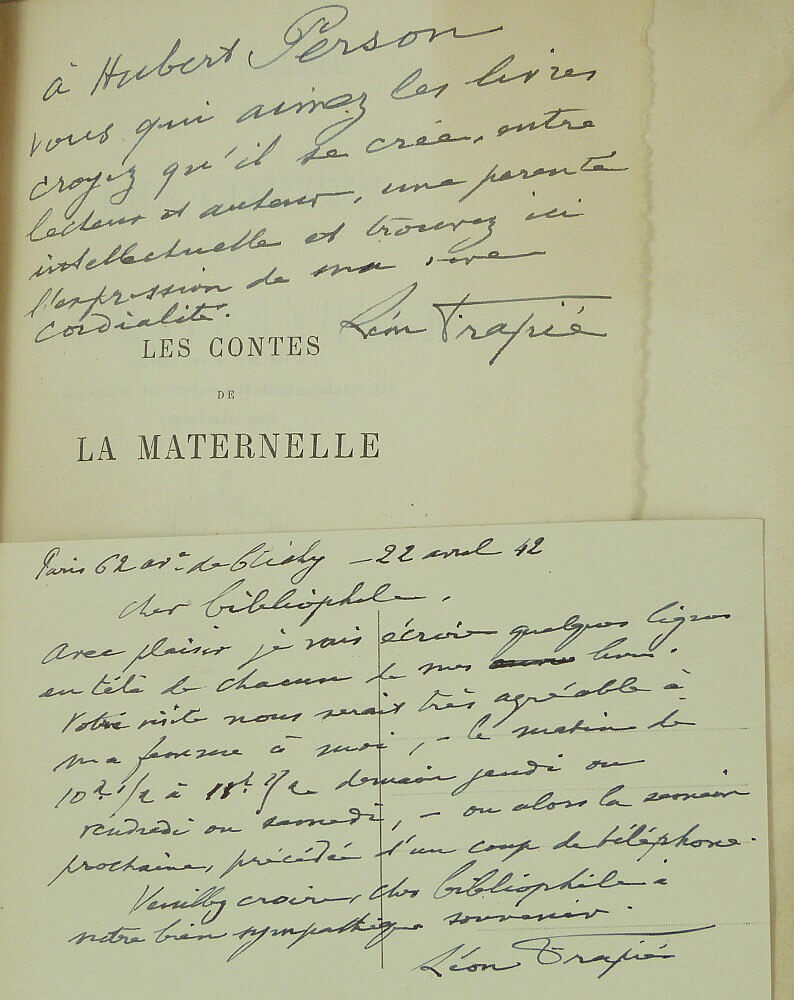 à Hubert Person
vous qui aimez les livres
croyez qu'il se crée, entre
lecteur et auteur, une parenté
intellectuelle et trouvez ici
l'expression de ma vive
cordialité.
Léon Frapié
LES CONTES
DE
LA MATERNELLE
Paris 62 av.e de Clichy - 22 avril 42
cher bibliophile,
Avec plaisir je vais écrire quelques lignes
en tête de chacun de mes livres.
Votre visite nous serait très agréable à
ma femme à moi, - le matin de
10h 1/2 à 11h 1/2 demain jeudi ou
vendredi ou samedi, - ou alors la semaine
prochaine, précédée d'un coup de téléphone.
Veuillez croire, cher bibliophile à
notre bien sympathique souvenir.
Léon Frapié